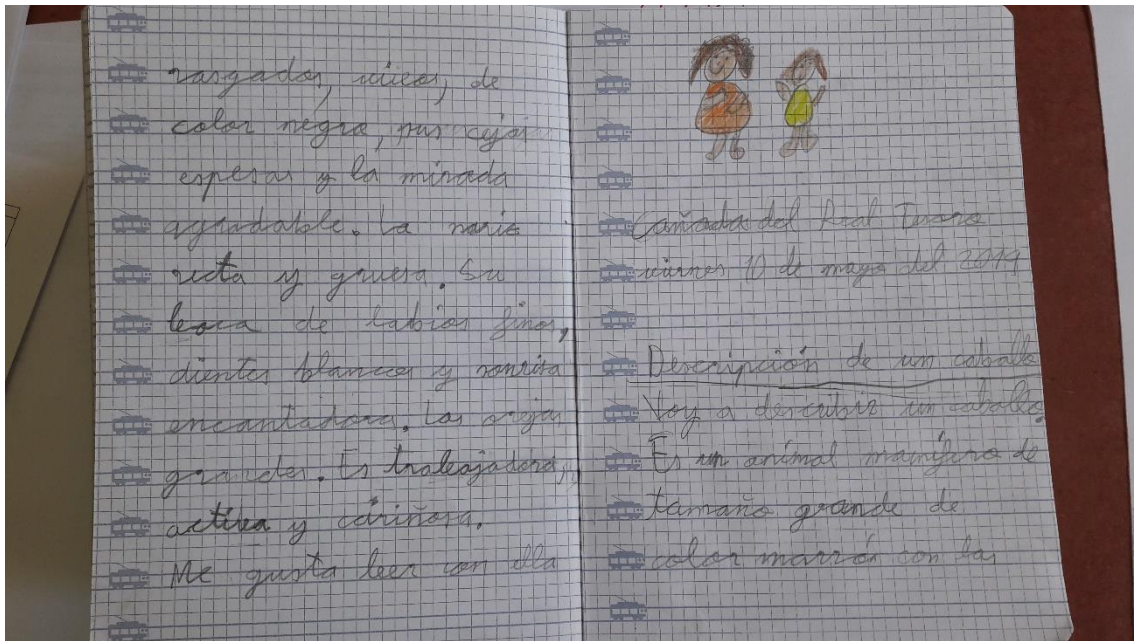 rasgados, vivos, de
color negro, sus cejas
espesas y la mirada
agradable. La nariz
recta y gruesa. Su
boca de labios finos,
dientes blancos y sonrisa
encantadora. Las orejas
grandes. Es trabajadora,
activa y cariñosa.
Me gusta leer con ella
Cañada del Real Tesoro
viernes 10 de mayo del 2019
Descripción de un caballo
Voy a describir un caballo.
Es un animal mamífero de
tamaño grande de
color marrón con las